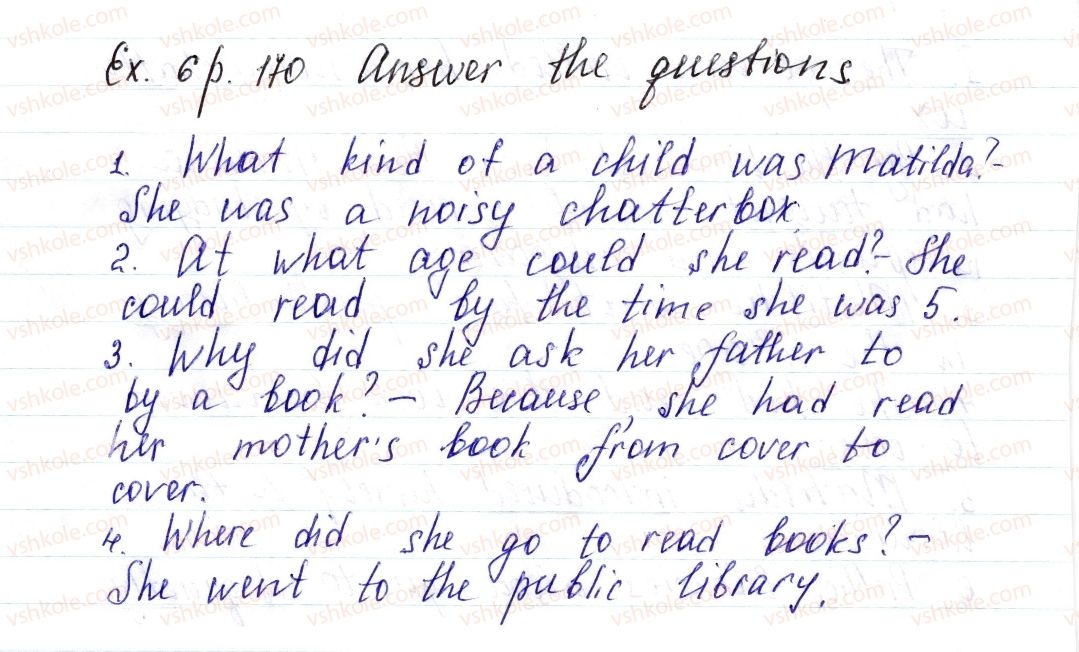 Ex. 6 p. 170 Answer the questions
1. What kind of a child was Matilda? -
She was a noisy chatterbox
2. At what age could she read? - She
could read by the time she was 5.
3. Why did she ask her father to
by a book? - Because, she had read
her mother's book from cover to
cover.
4. Where did she go to read books? -
She went to the public library.